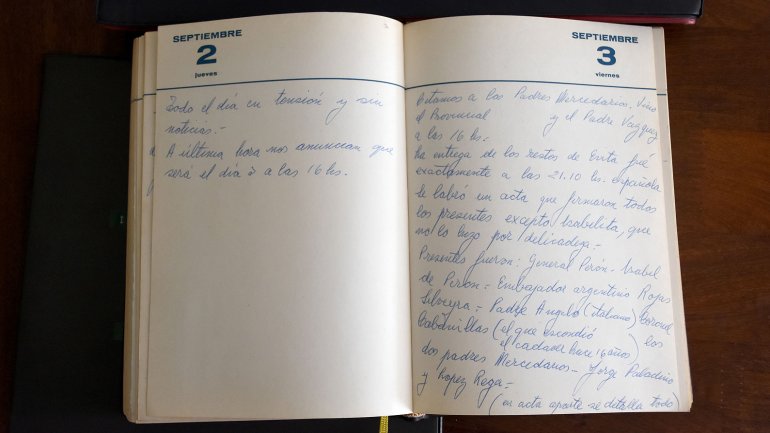 SEPTIEMBRE
2
jueves
Todo el día en tensión y sin
noticias.-
A última hora nos anuncian que
será el día 3 a las 16 hs.
SEPTIEMBRE
3
viernes
Citamos a los Padres Mercedarios. Vino
el Provincial y el Padre Vazquez
a las 16 hs.
La entrega de los restos de Evita fué
exactamente a las 21.10 hs. española
Se labró un acta que firmaron todos
los presentes excepto Isabelita, que
no lo hizo por delicadeza.-
Presentes fueron: General Perón - Isabel
de Perón = Embajador argentino Rojas
Silveyra = Padre Angelo (italiano) Coronel
Cabanillas (el que escondió
el cadaver hace 16 años) los
dos padres Mercedarios - Jorge Paladino
y Lopez Rega =
(en acta aparte se detalla todo)